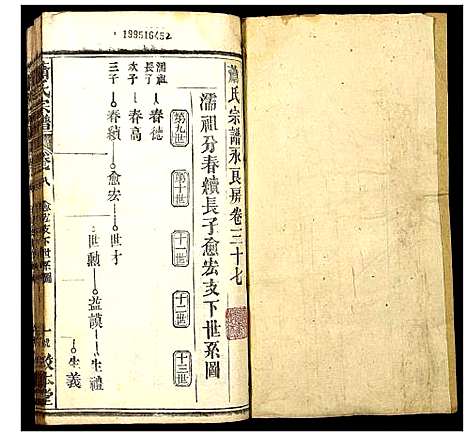 199516452
蕭氏宗譜永良房卷三十七
濡祖分春續長子愈宏支下世系圖
第九世
第十世
十一世
十二世
十三世
濡祖
長子
春德
次子
春高
三子
春續
愈宏
世才
世勳
益謨
生禮
生義
蕭氏宗譜
愈宏支下世系圖